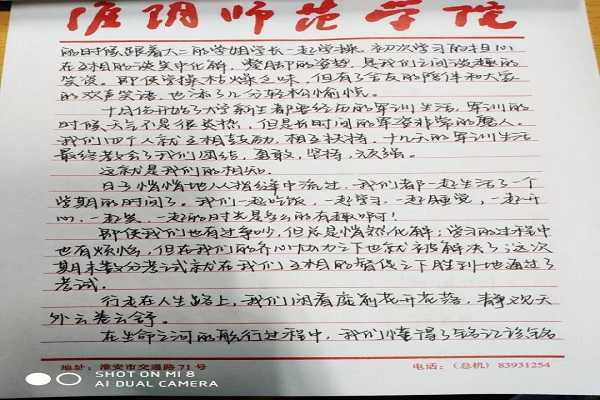 淮阴师范学院
的时候跟着大二的学姐学长一起学操。初次学习的担心
在互相的谈笑中化解,蹩脚的姿势,是我们空间谈趣的
笑资。即使学操枯燥乏味,但有了舍友的陪伴和大家
的欢声笑语,也添了几分轻松愉悦。
十月份开始了大学新生都要经历的军训生活,军训的
时候天气不是很炎热,但是长时间的军姿非常的磨人。
我们四个人就互相鼓励,相互扶持,十几天的军训生活
最终教会了我们团结,勇敢,坚持,顽强。
这就是我们的相知。
日子悄悄地从指缝中流过,我们都一起生活了一个
学期的时间了。我们一起吃饭,一起学习,一起睡觉,一起开
心,一起笑,一起的时光是多么的有趣啊!
即使我们也有过争吵,但总是悄然化解;学习的过程中
也有烦恼,但在我们的齐心协力之下也就被解决了,这次
期末数分考试就在我们互相的督促之下胜利地通过了
考试。
行走在人生路上,我们闲看庭前花开花落,静观天
外云卷云舒。
在生命之河的航行过程中,我们懂得了铭记该铭
地址:淮安市交通路71号
电话:(总机)83931254
SHOT ON MI 8
AI DUAL CAMERA